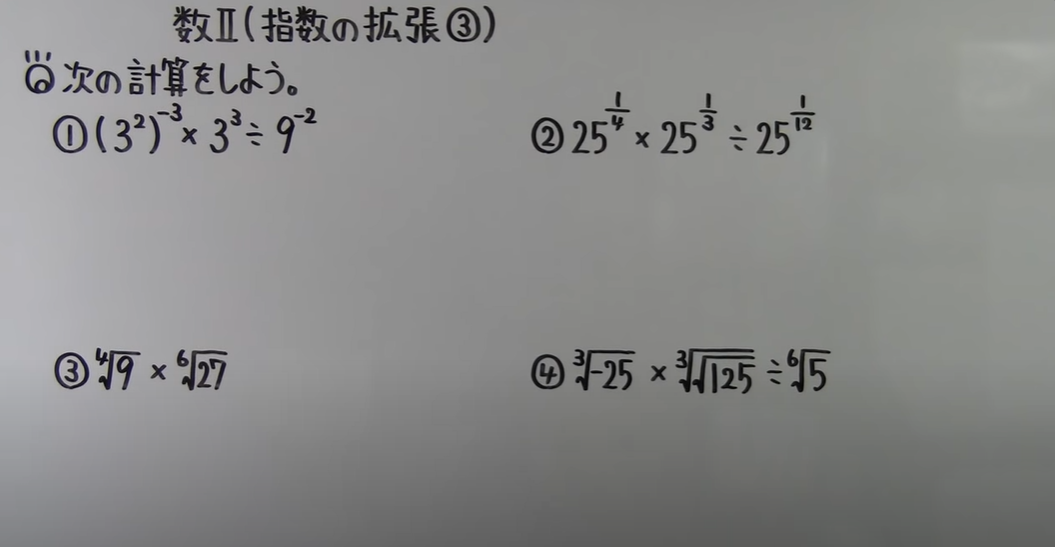 数Ⅱ(指数の拡張③)
次の計算をしよう。
①(3²)⁻³×3³÷9⁻²
②25^{1/4}×25^{1/3}÷25^{1/12}
③⁴√9×⁶√27
④³√-25×³√√125÷⁶√5